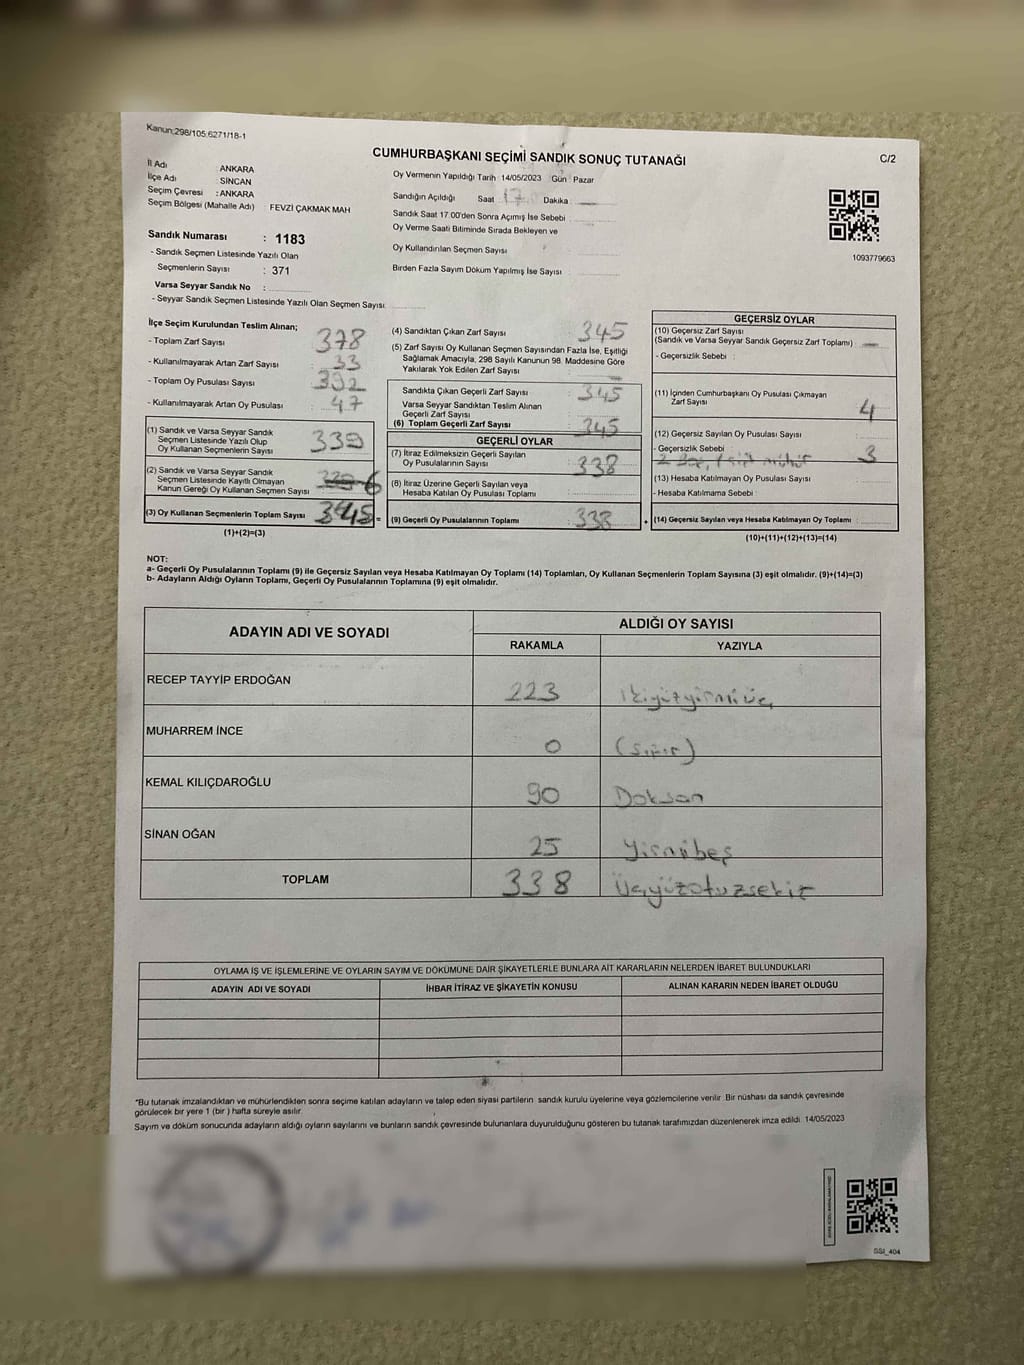 Kanun;298/105;6271/18-1
CUMHURBAŞKANI SEÇİMİ SANDIK SONUÇ TUTANAĞI
C/2
İl Adı : ANKARA
İlçe Adı : SİNCAN
Seçim Çevresi : ANKARA
Seçim Bölgesi (Mahalle Adı) FEVZİ ÇAKMAK MAH
Oy Vermenin Yapıldığı Tarih : 14/05/2023 Gün : Pazar
Sandığın Açıldığı Saat 17 Dakika
Sandık Saat 17.00'den Sonra Açımış İse Sebebi
Oy Verme Saati Bitiminde Sırada Bekleyen ve
Oy Kullandırılan Seçmen Sayısı
Birden Fazla Sayım Döküm Yapılmış İse Sayısı
1093779663
Sandık Numarası : 1183
- Sandık Seçmen Listesinde Yazılı Olan
Seçmenlerin Sayısı : 371
Varsa Seyyar Sandık No :
- Seyyar Sandık Seçmen Listesinde Yazılı Olan Seçmen Sayısı
İlçe Seçim Kurulundan Teslim Alınan;
- Toplam Zarf Sayısı 378
- Kullanılmayarak Artan Zarf Sayısı 33
- Toplam Oy Pusulası Sayısı
- Kullanılmayarak Artan Oy Pusulası 47
(1) Sandık ve Varsa Seyyar Sandık
Seçmen Listesinde Yazılı Olup
Oy Kullanan Seçmenlerin Sayısı 339
(2) Sandık ve Varsa Seyyar Sandık
Seçmen Listesinde Kayıtlı Olmayan
Kanun Gereği Oy Kullanan Seçmen Sayısı 6
(3) Oy Kullanan Seçmenlerin Toplam Sayısı 345 =
(1)+(2)=(3)
(4) Sandıktan Çıkan Zarf Sayısı 345
(5) Zarf Sayısı Oy Kullanan Seçmen Sayısından Fazla İse, Eşitliği
Sağlamak Amacıyla, 298 Sayılı Kanunun 98. Maddesine Göre
Yakılarak Yok Edilen Zarf Sayısı
Sandıkta Çıkan Geçerli Zarf Sayısı 345
Varsa Seyyar Sandıktan Teslim Alınan
Geçerli Zarf Sayısı
(6) Toplam Geçerli Zarf Sayısı : 345
GEÇERLİ OYLAR
(7) İtiraz Edilmeksizin Geçerli Sayılan
Oy Pusulalarının Sayısı : 338
(8) İtiraz Üzerine Geçerli Sayılan veya
Hesaba Katılan Oy Pusulası Toplamı :
(9) Geçerli Oy Pusulalarının Toplamı : 338 +
GEÇERSİZ OYLAR
(10) Geçersiz Zarf Sayısı
(Sandık ve Varsa Seyyar Sandık Geçersiz Zarf Toplamı) :
- Geçersizlik Sebebi :
(11) İçinden Cumhurbaşkanı Oy Pusulası Çıkmayan
Zarf Sayısı 4
(12) Geçersiz Sayılan Oy Pusulası Sayısı :
- Geçersizlik Sebebi 3
mühür
(13) Hesaba Katılmayan Oy Pusulası Sayısı
- Hesaba Katılmama Sebebi
(14) Geçersiz Sayılan veya Hesaba Katılmayan Oy Toplamı :
(10)+(11)+(12)+(13)=(14)
NOT:
a- Geçerli Oy Pusulalarının Toplamı (9) ile Geçersiz Sayılan veya Hesaba Katılmayan Oy Toplamı (14) Toplamları, Oy Kullanan Seçmenlerin Toplam Sayısına (3) eşit olmalıdır. (9)+(14)=(3)
b- Adayların Aldığı Oyların Toplamı, Geçerli Oy Pusulalarının Toplamına (9) eşit olmalıdır.
ADAYIN ADI VE SOYADI
ALDIĞI OY SAYISI
RAKAMLA YAZIYLA
RECEP TAYYİP ERDOĞAN 223 ikiyüzyirmiüç
MUHARREM İNCE 0 (Sıfır)
KEMAL KILIÇDAROĞLU 90 Doksan
SİNAN OĞAN 25 Yirmibeş
TOPLAM 338 Üçyüzotuzsekiz
OYLAMA İŞ VE İŞLEMLERİNE VE OYLARIN SAYIM VE DÖKÜMÜNE DAİR ŞİKAYETLERLE BUNLARA AİT KARARLARIN NELERDEN İBARET BULUNDUKLARI
ADAYIN ADI VE SOYADI İHBAR İTİRAZ VE ŞİKAYETİN KONUSU ALINAN KARARIN NEDEN İBARET OLDUĞU
"Bu tutanak imzalandıktan ve mühürlendikten sonra seçime katılan adayların ve talep eden siyasi partilerin sandık kurulu üyelerine veya gözlemcilerine verilir. Bir nüshası da sandık çevresinde
görülecek bir yere 1 (bir) hafta süreyle asılır.
Sayım ve döküm sonucunda adayların aldığı oyların sayılarını ve bunların sandık çevresinde bulunanlara duyurulduğunu gösteren bu tutanak tarafımızdan düzenlenerek imza edildi. 14/05/2023
SSI_404